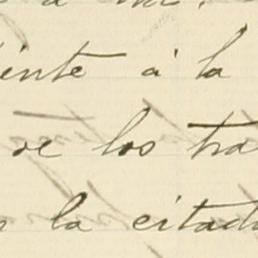 iente á la
de los tra
la citad